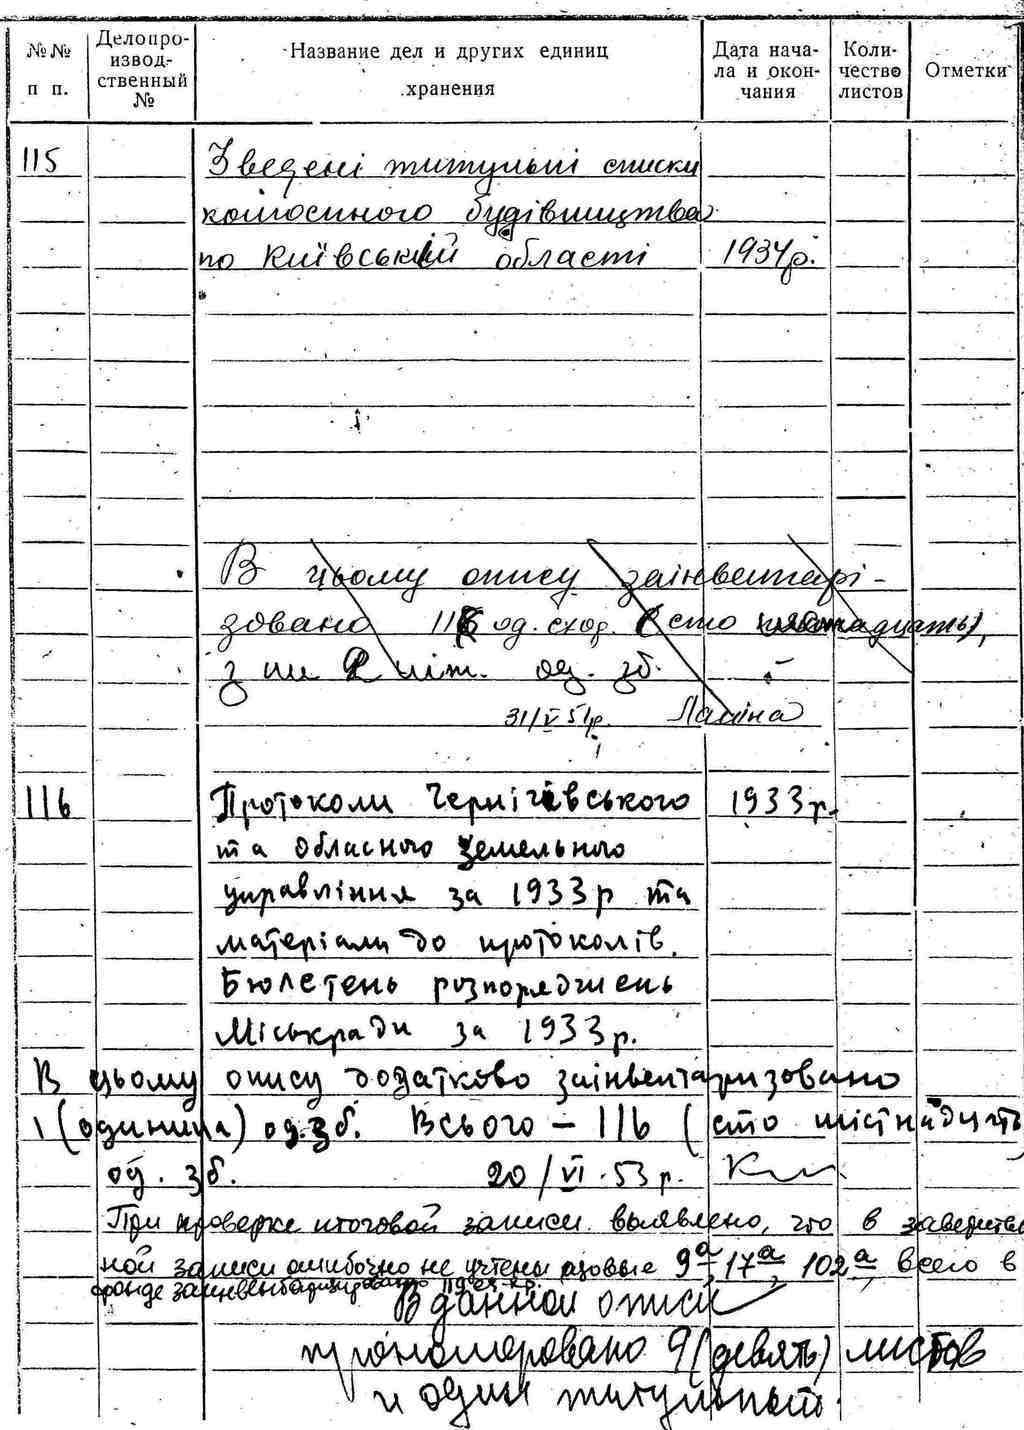 №№ п п.
Делопро-
извод-
ственный
№
Название дел и других единиц
хранения
Дата нача-
ла и окон-
чания
Коли-
чество
листов
Отметки
115 Зведені титульні списки
колгоспного будівництва
по Київській області 1934р.
В цьому опису заінвентарі-
зовано од. схор. (сто
з них 2 літ. од. зб.
31/V 51р.
116 Протоколи Чернігівського 1933 р.
та обласного земельного
управління за 1933р та
матеріали до протоколів.
Бюлетень розпоряджень
Міськради за 1933р.
В цьому опису додатково заінвентаризовано
1 (одиниця) од. зб. Всього — 116 (сто шістнадцять
од. зб. 20/VI.53р.
При проверке итоговой записи выявлено, что в заверитель
ной записи ошибочно не учтены 9а, 17а, 102а всего в
фонде заинвентаризировано 119 ед. хр.
В данной описи
пронумеровано 9 (девять) листов
и один титульный.